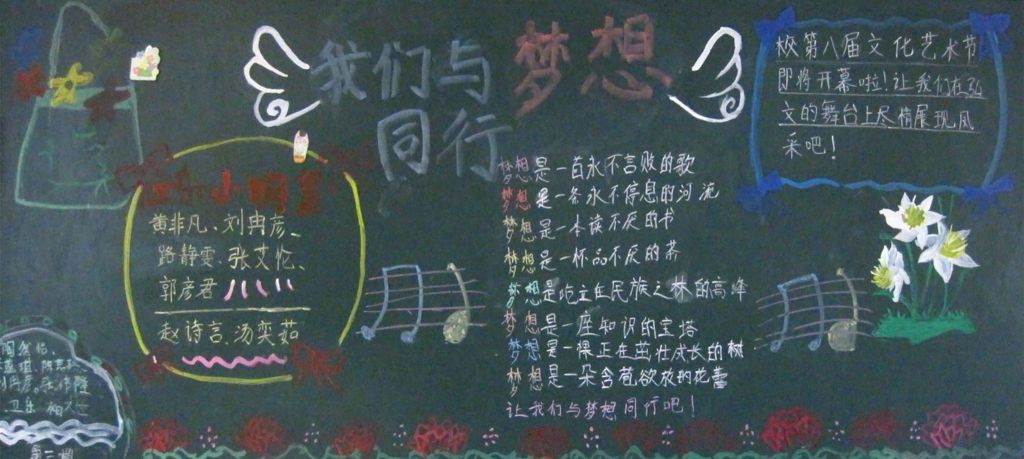 我们与梦想
同行
校第八届文化艺术节
即将开幕啦！让我们在弘
文的舞台上尽情展现风
采吧！
梦想是一首永不言败的歌
梦想是一条永不停息的河流
梦想是一本读不厌的书
梦想是一杯品不厌的茶
梦想是屹立在民族之林的高峰
梦想是一座知识的宝塔
梦想是一棵正在茁壮成长的树
梦想是一朵含苞欲放的花蕾
让我们与梦想同行吧！
黄非凡、刘冉彦、
路静雯、张艾忆、
郭彦君
赵诗言、汤奕茹
第二组